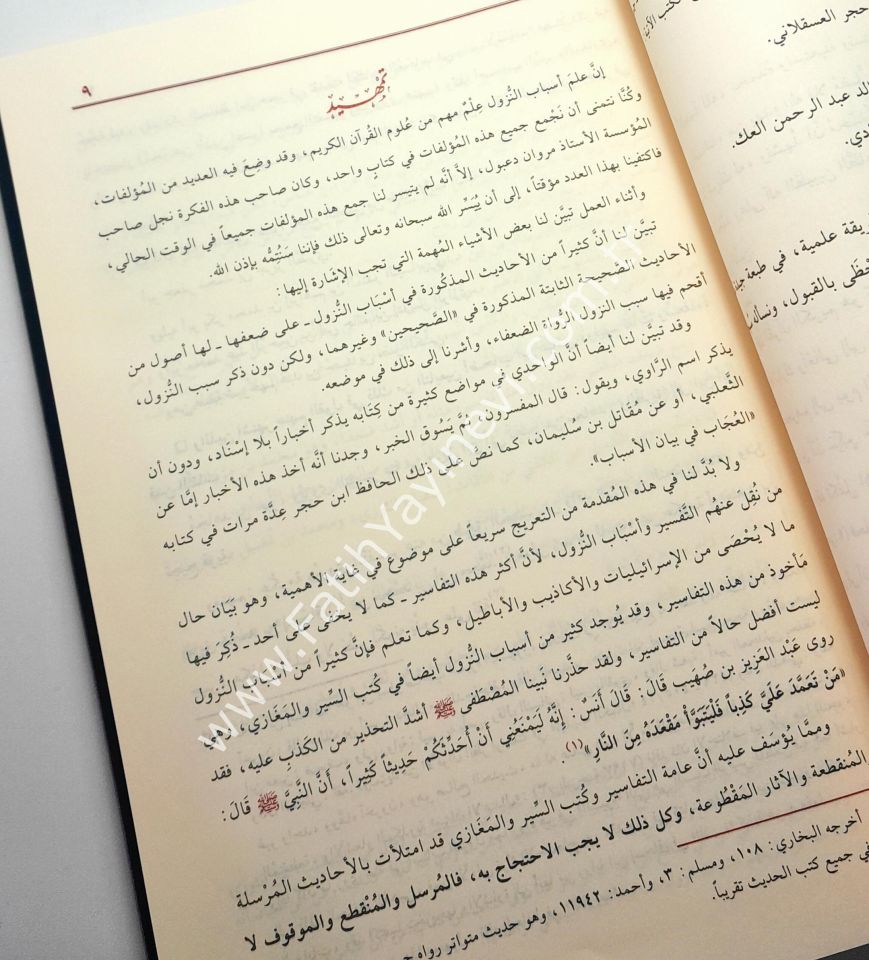 ٩
تمهيد
إنَّ علمَ أسباب النُّزول عِلْمٌ مهم من عُلوم القُرآن الكريم، وقد وضِعَ فيه العديد من المُؤلفات،
وكُنَّا نتمنى أن نَجْمع جميع هذه المُؤلفات في كتابٍ واحد، وكان صاحب هذه الفكرة نجل صاحب
المُؤسسة الأستاذ مروان دعبول، إلاَّ أنَّه لم يتيسر لنا جمع هذه المؤلفات جميعاً في الوقت الحالي،
فاكتفينا بهذا العدد مؤقتاً، إلى أن يُيَسِّر الله سبحانه وتعالى ذلك فإننا سَنُتِمُّه بإذن الله.
وأثناء العمل تبيَّن لنا بعض الأشياء المُهمة التي تجب الإشارة إليها:
تبيَّن لنا أنَّ كثيراً من الأحاديث المذكُورة في أسْبَاب النُّزول ـ على ضعفها ـ لها أصول من
الأحاديث الصَّحيحة الثابتة المذكورة في «الصَّحيحين» وغيرهما، ولكن دون ذكر سبب النُّزول،
أقحم فيها سبب النزول الرُّواة الضعفاء، وأشرنا إلى ذلك في موضعه.
وقد تبيَّن لنا أيضاً أنَّ الواحدي في مواضع كثيرة من كِتَابه يذكر أخباراً بلا إسْنَاد، ودون أن
يذكر اسم الرَّاوي، ويقول: قال المفسرون، ثُمَّ يَسُوق الخبر، وجدنا أنَّه أخذ هذه الأخبار إمَّا عن
الثَّعلبي، أو عن مُقَاتل بن سُليمان، كما نص على ذلك الحافظ ابن حجر عِدَّة مرات في كتابه
«العُجَاب في بيان الأسباب».
ولا بُدَّ لنا في هذه المُقدمة من التعريج سريعاً على موضوع في غاية الأهمية، وهو بَيَان حال
من نُقِلَ عنهم التَّفسير وأسْبَاب النُّزول، لأنَّ أكثر هذه التفاسير ـ كما لا يخفى على أحد ـ ذُكِرَ فيها
ما لا يُحْصَى من الإسرائيليات والأكاذيب والأباطيل، وكما تعلم فإنَّ كثيراً من أسباب النُّزول
مَأخوذ من هذه التفاسير، وقد يُوجد كثير من أسباب النُّزول أيضاً في كُتب السِّير والمَغازي، وهي
ليست أفضل حالاً من التفاسير، ولقد حذَّرنا نَبينا المُصْطَفى ﷺ أشدَّ التحذير من الكَذبِ عليه، فقد
روى عَبْد العَزِيز بن صُهَيب قَالَ: قَالَ أنَسٌ: إنَّهُ لَيَمْنَعُنِي أنْ أُحَدِّثَكُمْ حَدِيثاً كَثِيراً، أنَّ النَّبِيَّ ﷺ قَالَ:
«مَنْ تَعَمَّدَ عَلَيَّ كَذِباً فَلْيَتَبَوَّأْ مَقْعَدَهُ مِنَ النَّارِ»(١).
وممَّا يُؤسَف عليه أنَّ عامة التفاسير وكُتب السِّير والمَغَازي قد امتلأت بالأحاديث المُرْسلة
والمُنقطعة والآثار المَقْطُوعة، وكل ذلك لا يجب الاحتجاج به، فالمُرسل والمُنْقطع والموقوف لا
أخرجه البخاري: ١٠٨، ومسلم: ٣، وأحمد: ١١٩٤٢، وهو حديث متواتر رواه
في جميع كتب الحديث تقريباً.
حجر العسقلاني.
عبد الرحمن العك.
علمية، في طبعة
بالقبول،
www.FatihYayinevi.com.tr